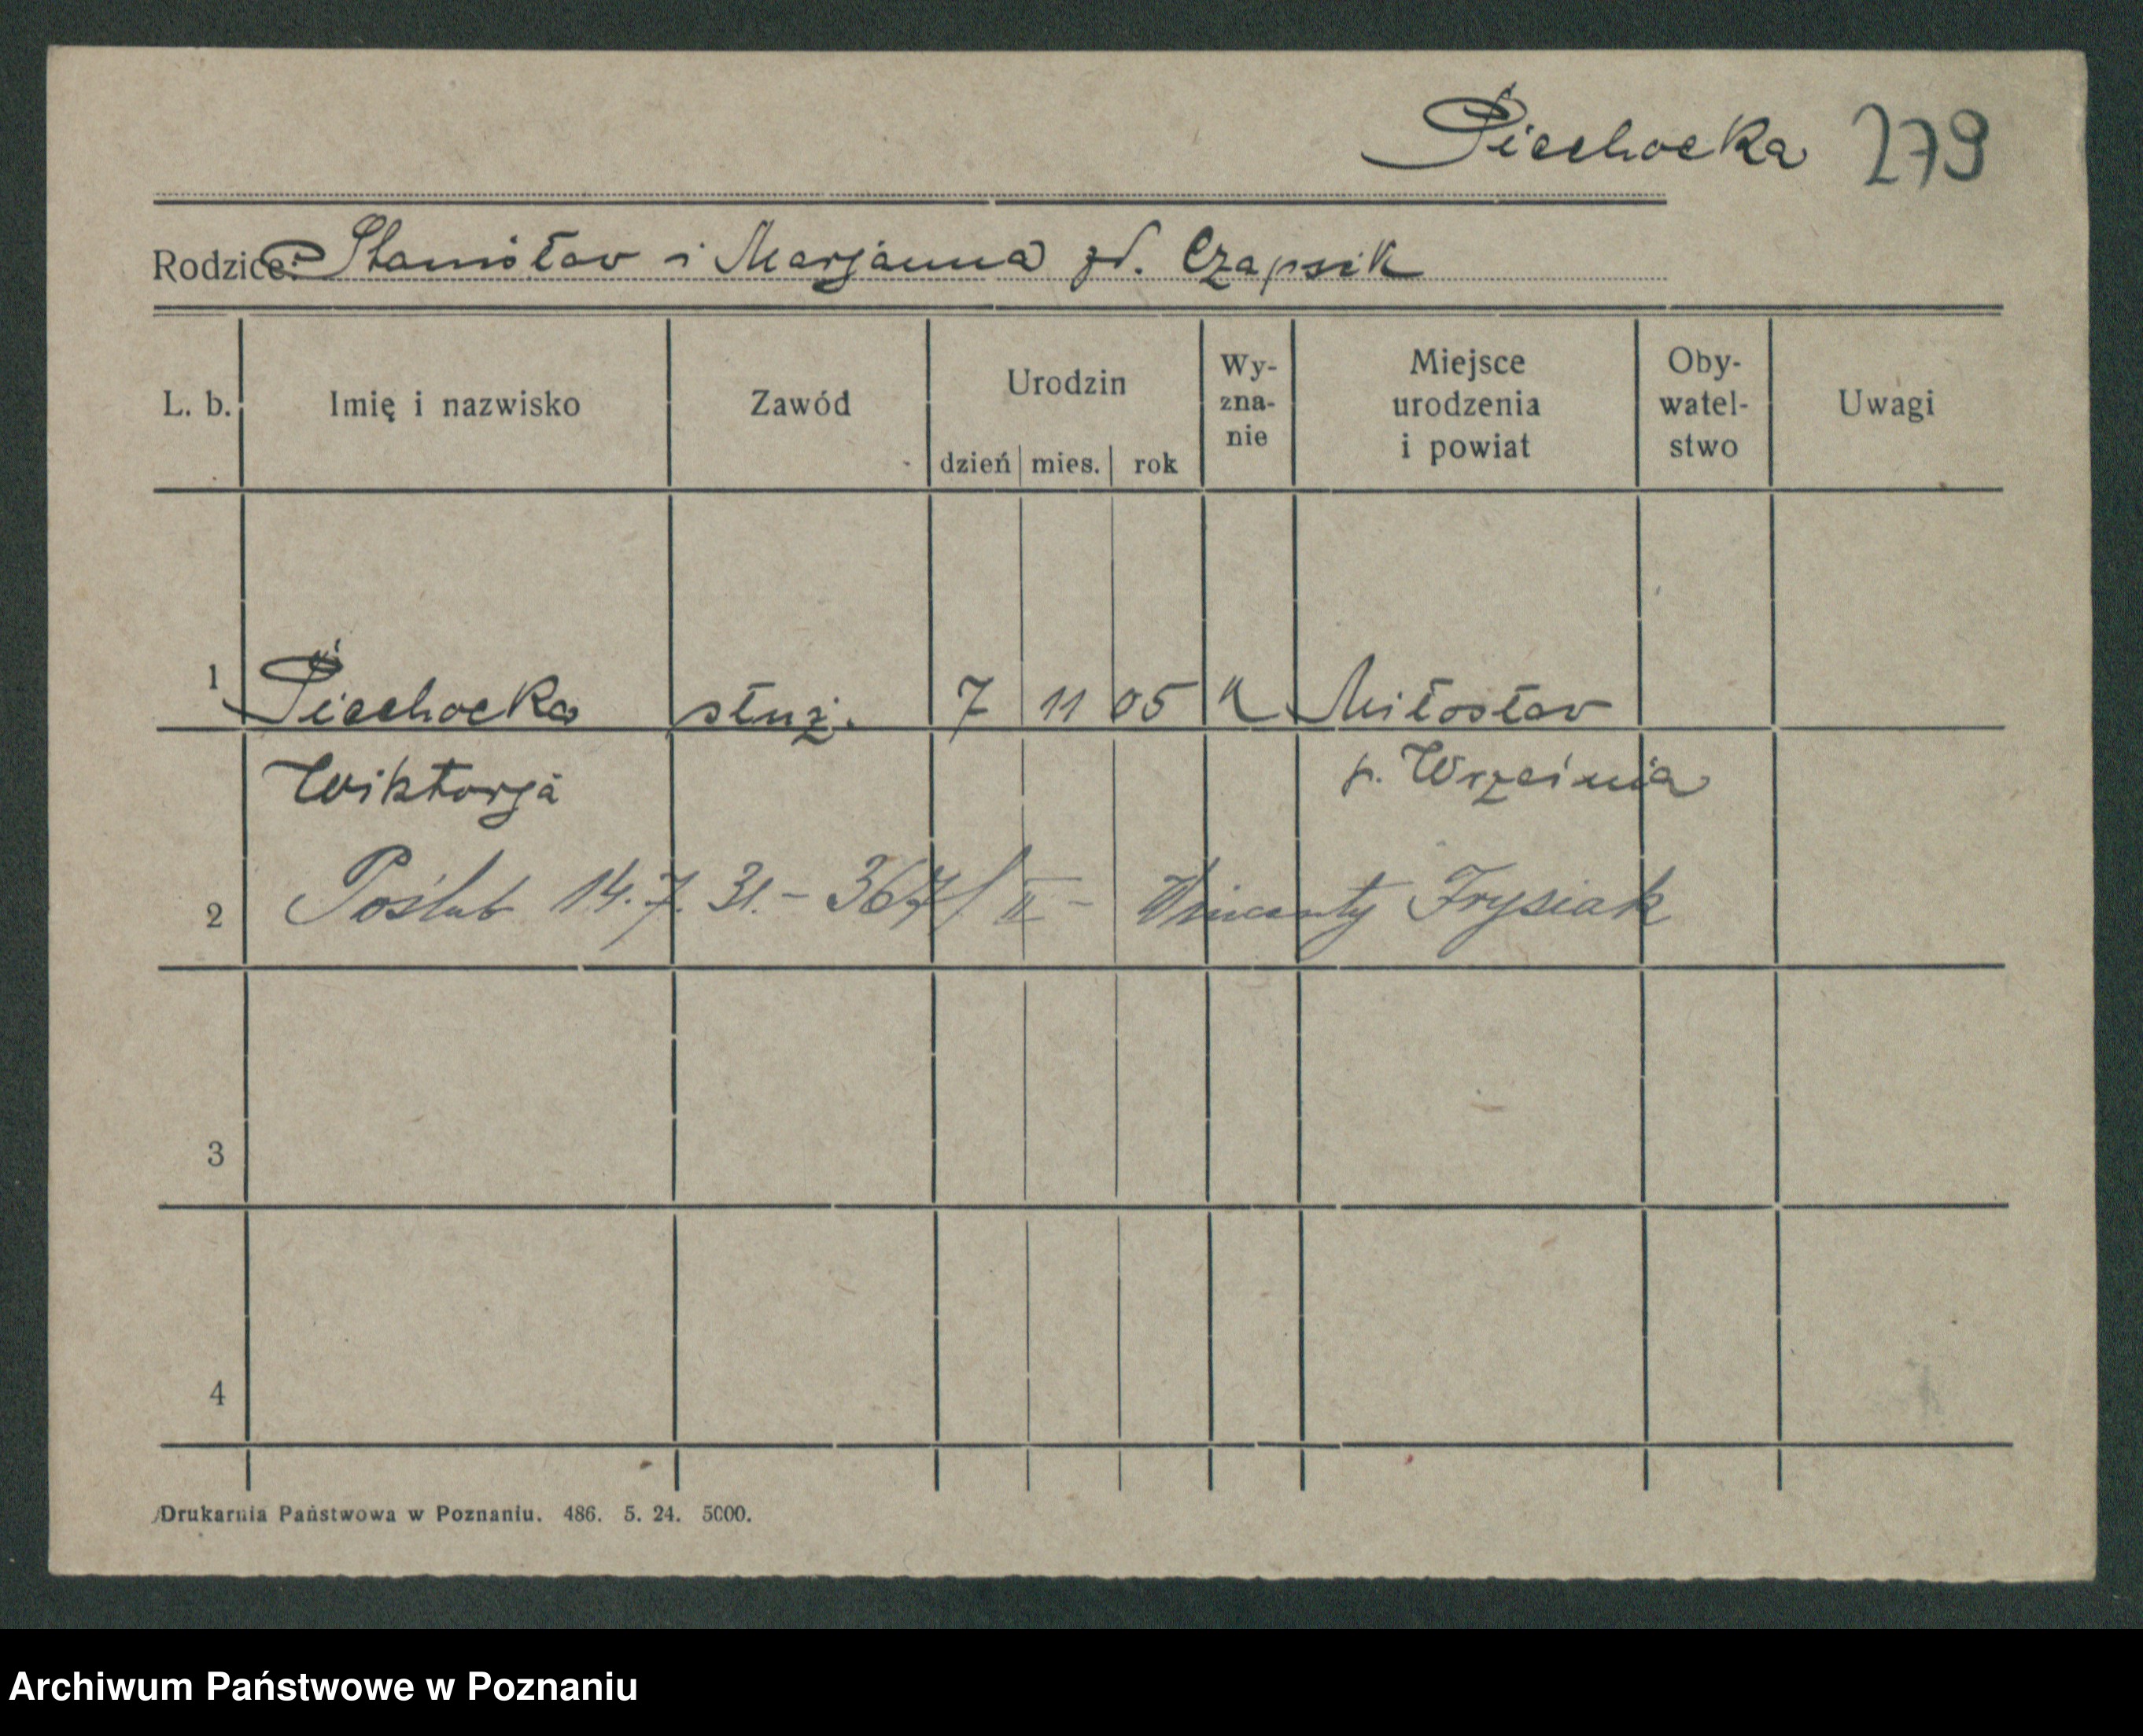 Piechocka 279
Rodzice: Stanisław i Marjanna zd. Czapsik
L. b. Imię i nazwisko Zawód Urodzin dzień mies. rok Wy-zna-nie Miejsce urodzenia i powiat Oby-watel-stwo Uwagi
1 Piechocka służ. 7 11 05 k Miłosław
Wiktorja p. Września
2 Poślub 14.7.31. - 367/II - Wincenty Frysiak
3
4
Drukarnia Państwowa w Poznaniu. 486. 5. 24. 5000.
Archiwum Państwowe w Poznaniu